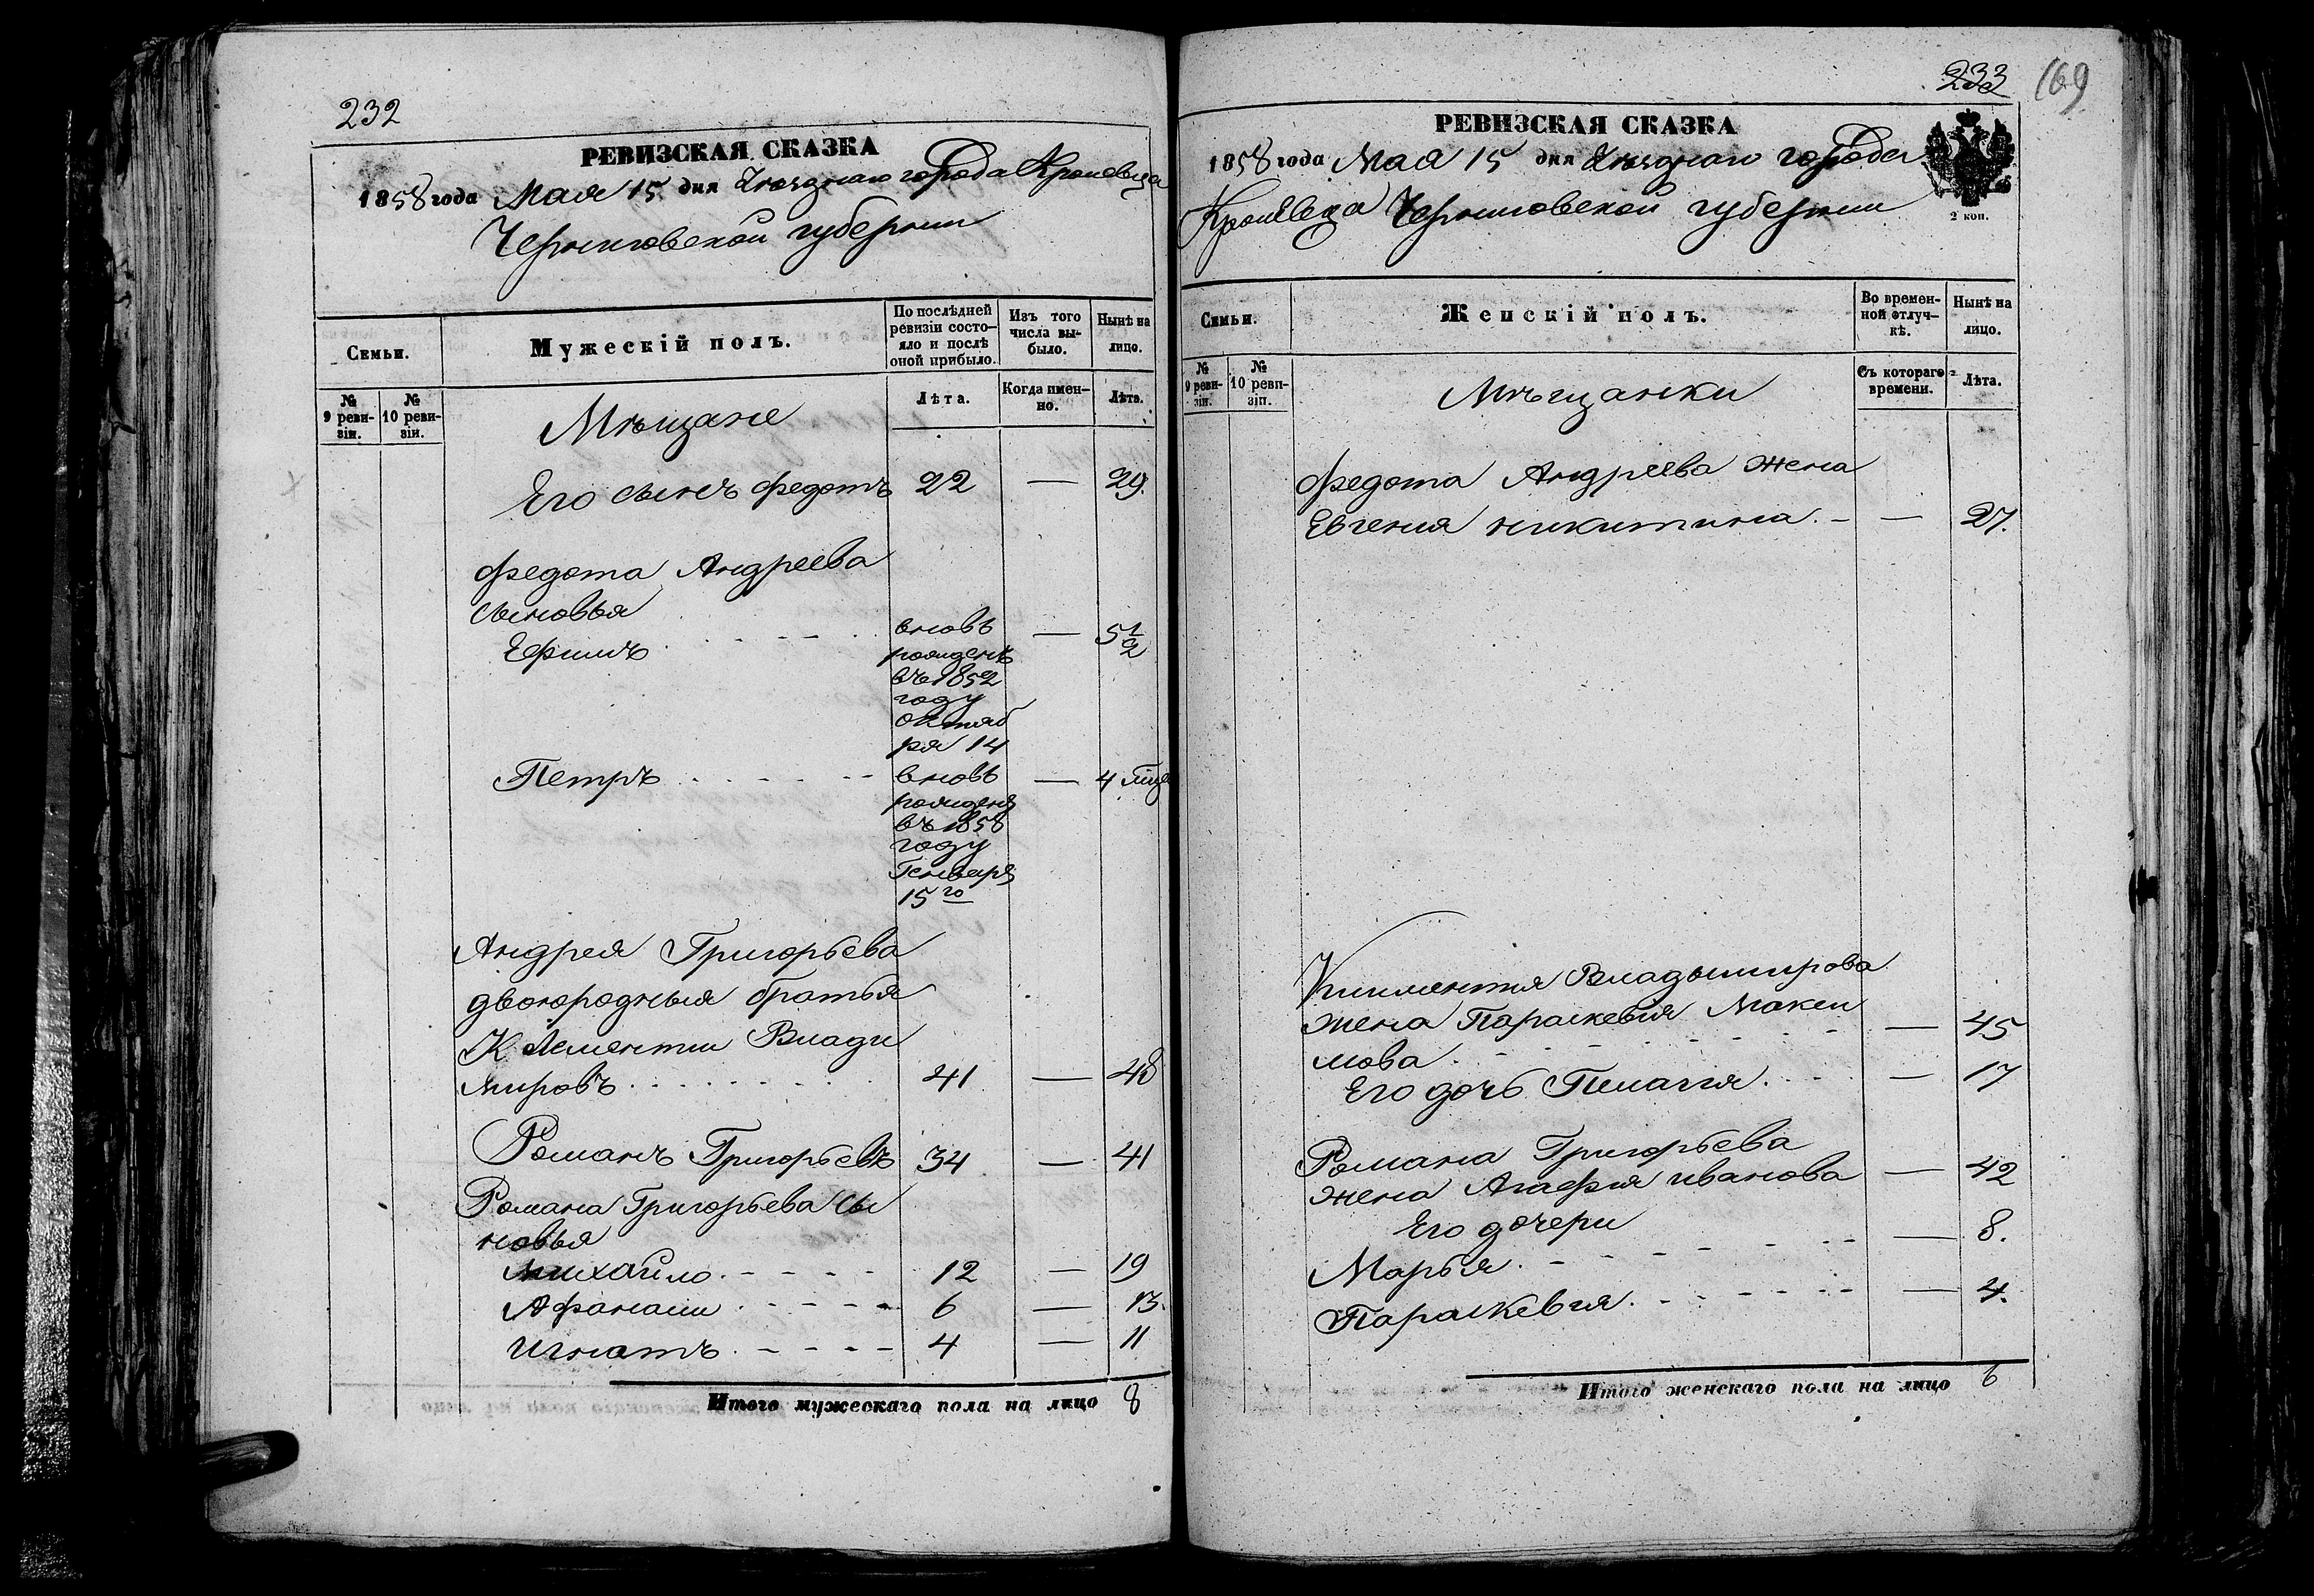 232
РЕВИЗСКАЯ СКАЗКА
1858 года Мая 15 дня Уѣзднаго города Кролевца
Черниговской губернии
Семьи.
Мужескій полъ.
По послѣдней ревизіи состо-
яло и послѣ оной прибыло.
Изъ того числа вы-
было.
Нынѣ на лицо.
№ 9 реви-
зіи.
№ 10 реви-
зіи.
Мѣщане
Лѣта.
Когда имен-
но.
Лѣта.
Его сынъ Федотъ 22 — 29.
Федота Андреева
сыновья
Ефимъ вновь — 5 1/2
рожденъ
въ 1852
году
октяб
ря 14
Петръ вновь — 4 мце
рожденъ
въ 1858
году
Генваря
15го
Андрея Григорьева
двоюродныя братья
Клементии Влади
мировъ 41 — 48
Романъ Григорьевъ 34 — 41
Романа Григорьева сы
новья
Михайло 12 — 19
Афанасии 6 — 13.
Игнатъ 4 — 11
Итого мужескаго пола на лицо 8
233
169
РЕВИЗСКАЯ СКАЗКА
1858 года Мая 15 дня Уѣзднаго города
Кролевца Черниговской губернии
2 коп.
Семьи.
Женскій полъ.
Во времен-
ной отлуч-
кѣ.
Нынѣ на лицо.
№ 9 реви-
зіи.
№ 10 реви-
зіи.
Мѣщанки
Съ котораго времени.
Лѣта.
Федота Андреева жена
Евгения никитина. — — 27.
Климентия Владымирова
жена Параскевия Макси
мова — 45
Его дочь Пелагия — 17
Романа Григорьева
жена Агафия иванова — 42
Его дочери
Марья — 8.
Параскевия — 4.
Итого женскаго пола на лицо 6